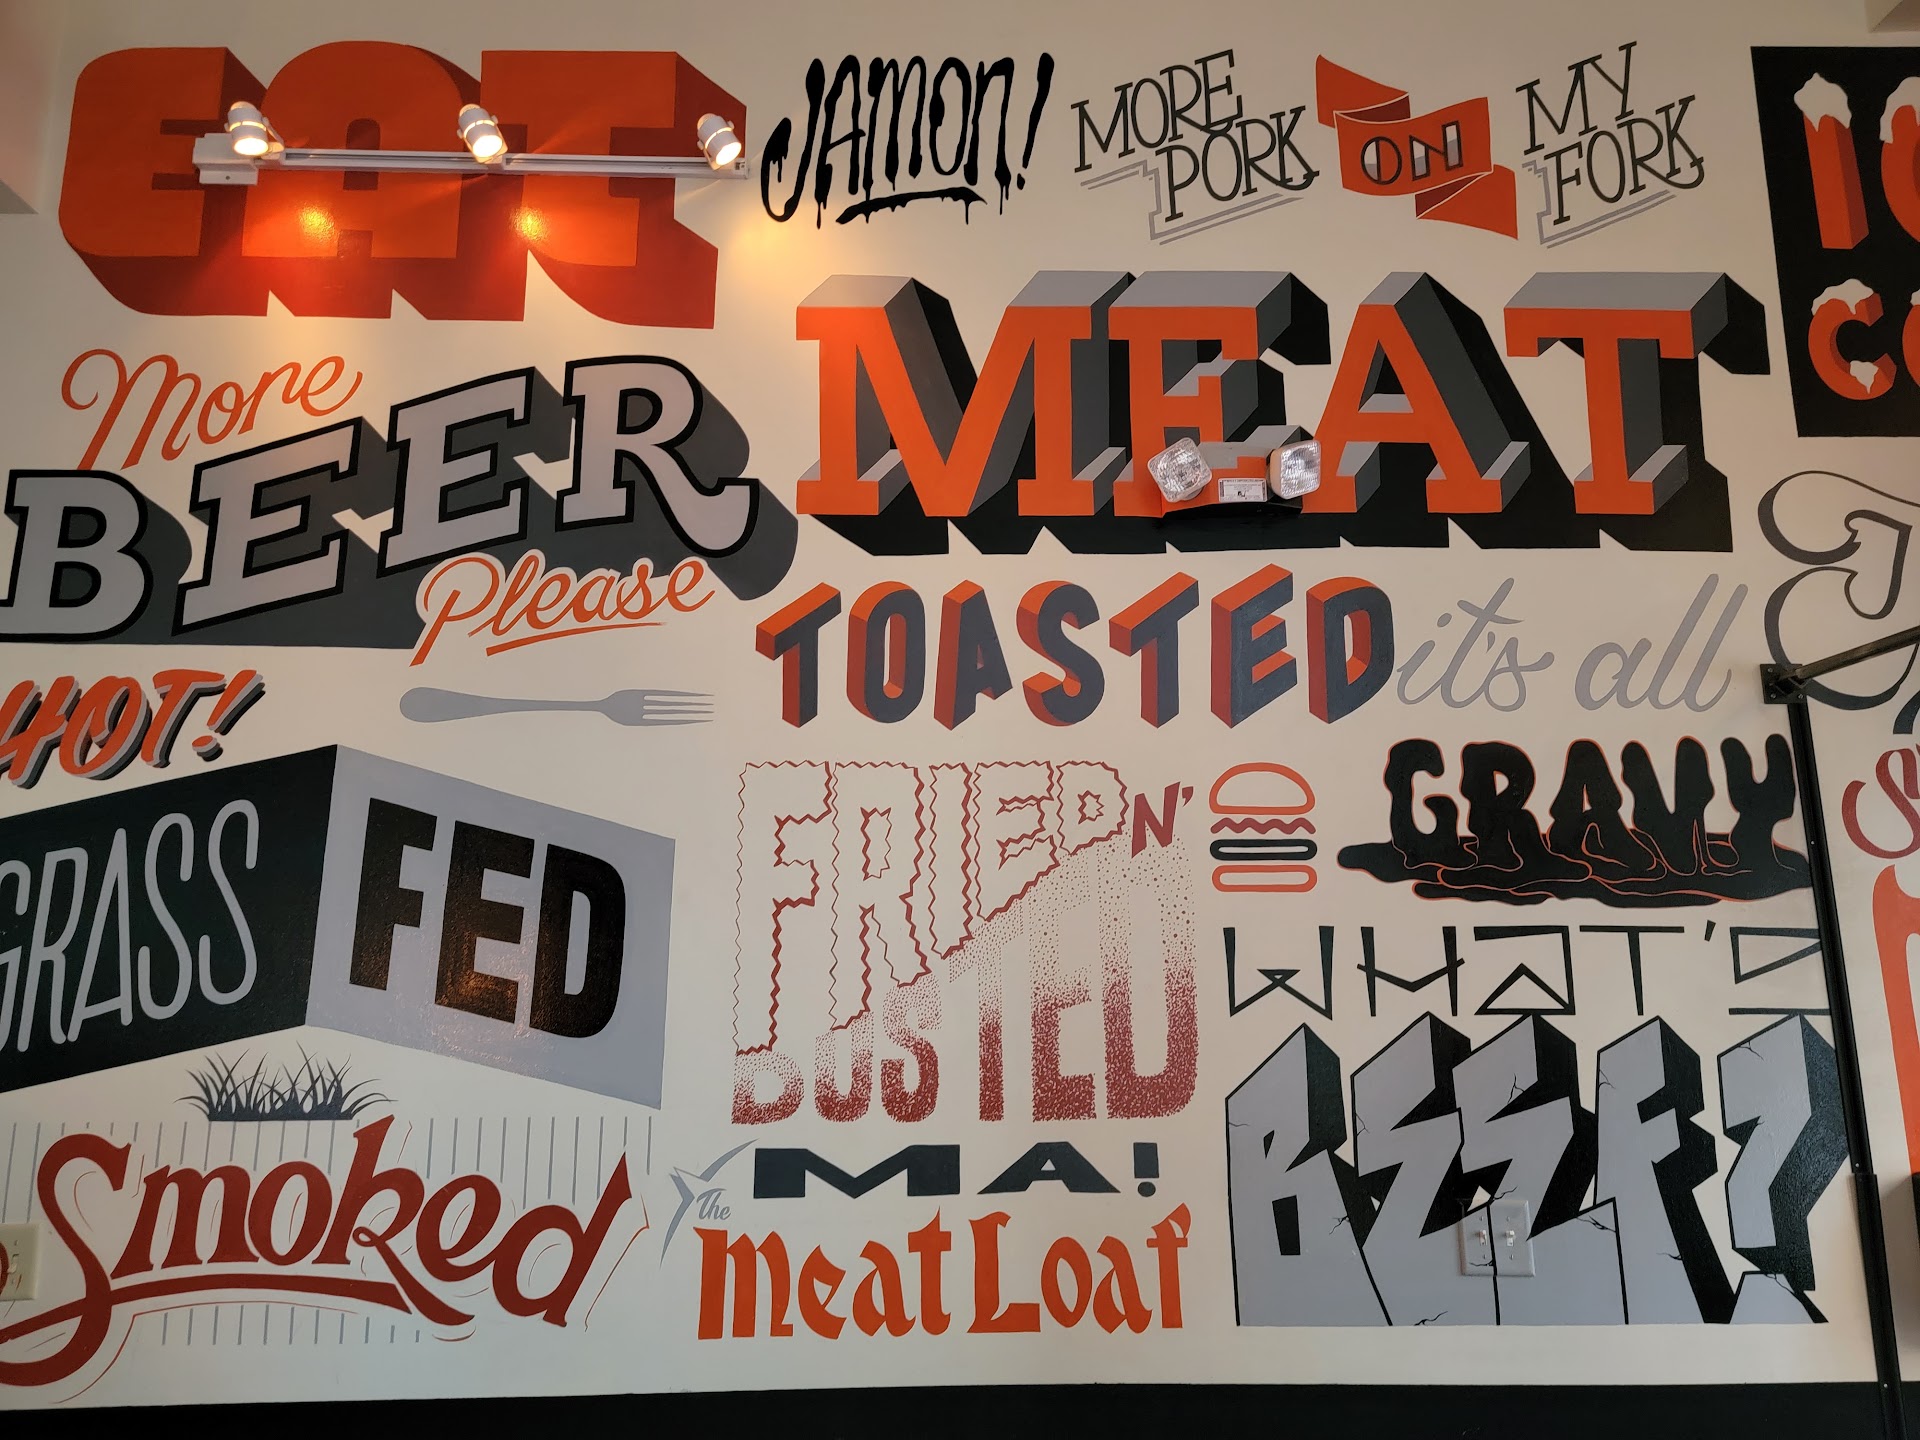 EAT
JAMON!
MORE PORK ON MY FORK
MEAT
More
BEER
Please
HOT!
TOASTED
it's all
GRAVY
GRASS FED
FRIED N'
BUSTED
WHAT'S
BEEF?
Smoked
MA!
The
Meat Loaf